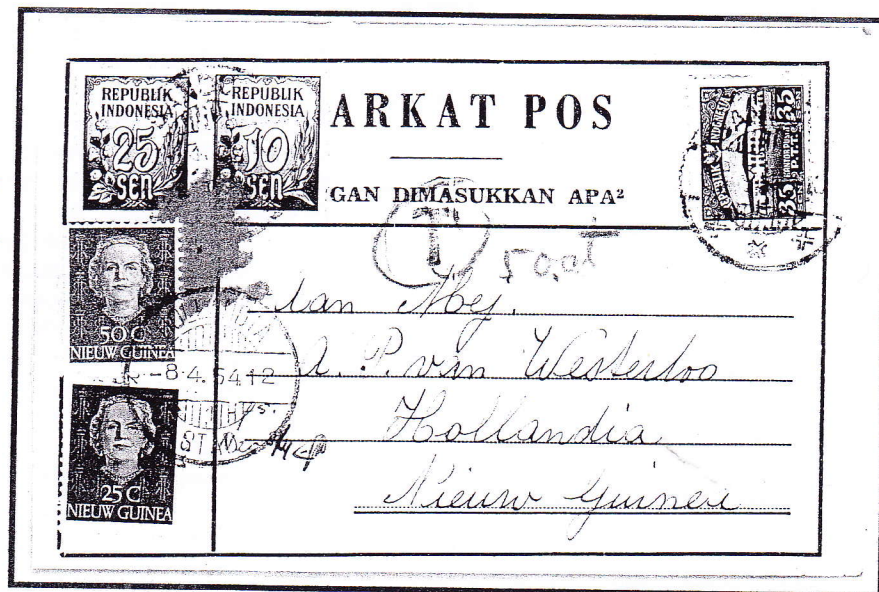 REPUBLIK
INDONESIA
25
SEN
REPUBLIK
INDONESIA
10
SEN
ARKAT POS
GAN DIMASUKKAN APA²
35
35
T
50 ct
50 C
NIEUW GUINEA
-8-4.54 12
25 C
NIEUW GUINEA
Aan Mej.
A. P. van Westerloo
Hollandia
Nieuw Guinea